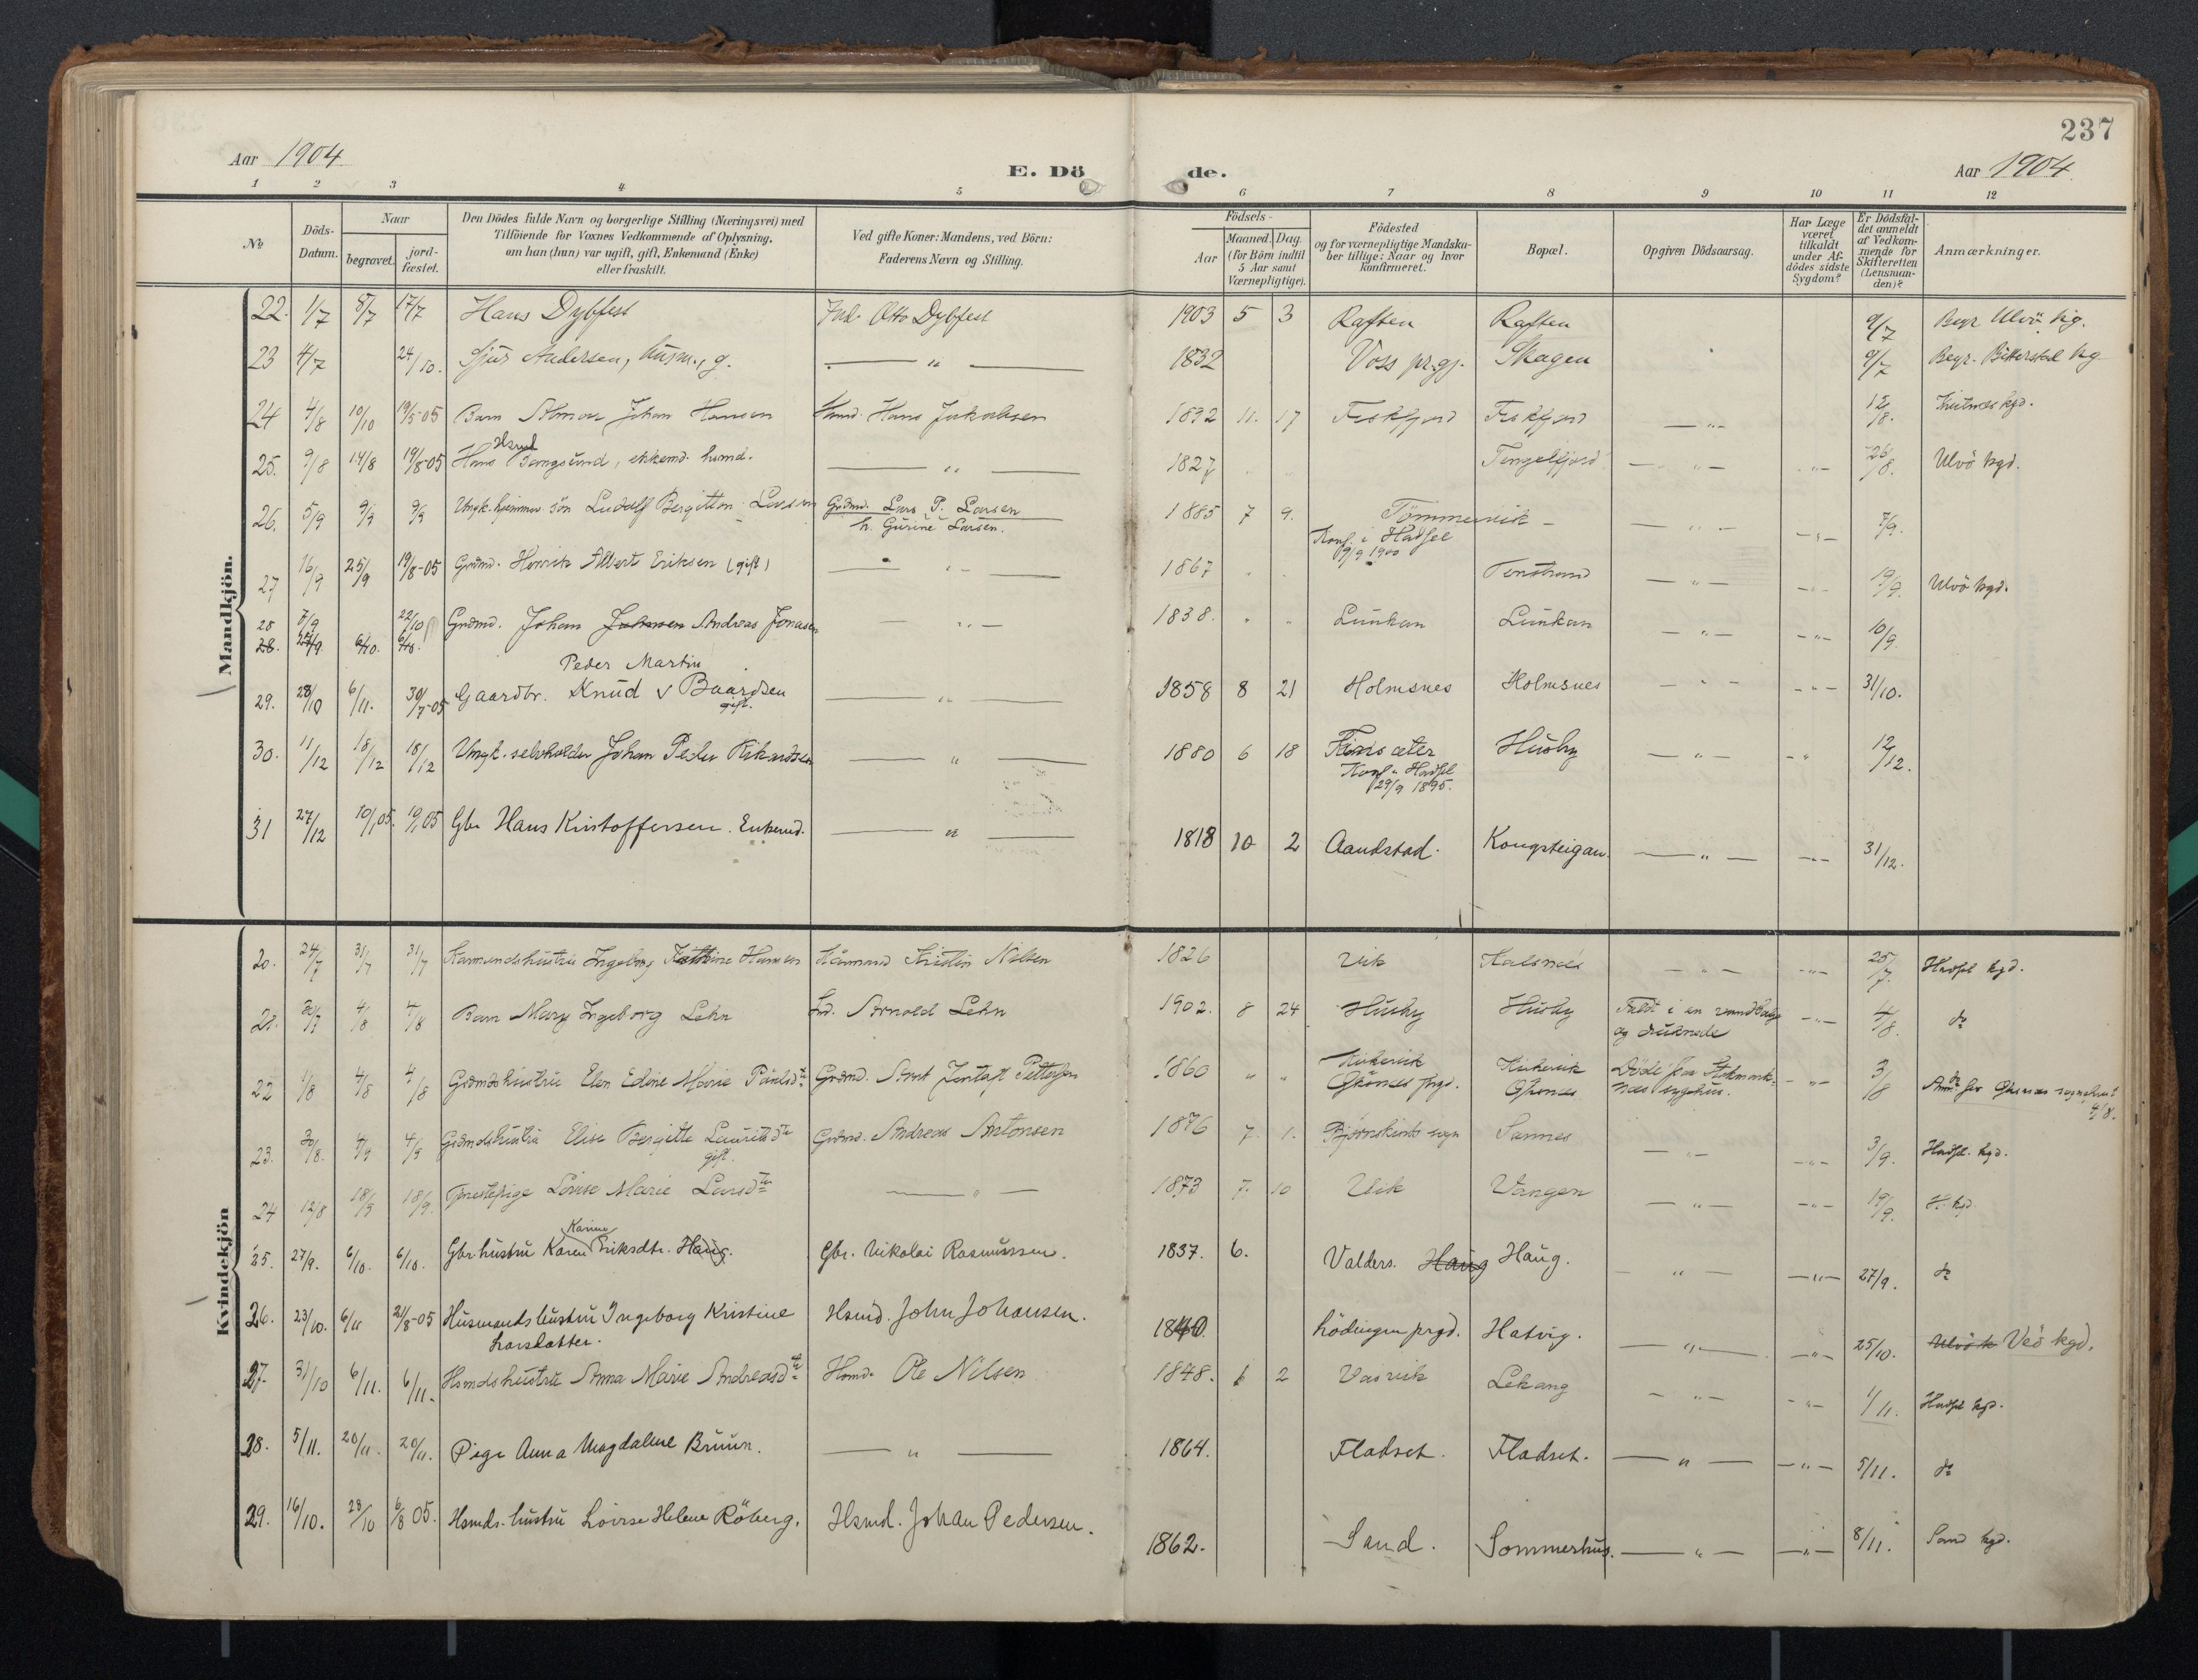 237
Aar 1904
E. Dö de.
Aar 1904
1 2 3 4 5 6 7 8 9 10 11 12
№
Döds-Datum.
Naar
begravet.
jord-fæstet.
Den Dödes fulde Navn og borgerlige Stilling (Næringsvei) med
Tilföiende for Voxnes Vedkommende af Oplysning,
om han (hun) var ugift, gift, Enkemand (Enke)
eller fraskilt.
Ved gifte Koner: Mandens, ved Börn:
Faderens Navn og Stilling.
Födsels-
Aar
Maaned. Dag.
(for Börn indtil
5 Aar samt
Værnepligtige).
Födested
og for værnepligtige Mandska-
ber tillige: Naar og hvor
konfirmeret.
Bopæl.
Opgiven Dödsaarsag.
Har Læge
været
tilkaldt
under Af-
dödes sidste
Sygdom?
Er Dödsfal-
det anmeldt
af Vedkom-
mende for
Skifteretten
(Lensman-
den)?
Anmærkninger.
Mandkjön.
22. 1/7 8/7 17/7 Hans Dybfest Otto Dybfest 1903 5 3 Raften Raften 9/7 Begr. Ulvö kg.
23 4/7 24/10. Sjur Andersen, husm., g. — " — 1832 Voss prgj. Skagen 9/7 Begr. kg
24 4/8 10/10 19/5-05 Barn Johan Hansen Hans Jakobsen 1892 11. 17 Fiskfjord Fiskfjord — " — 12/8. kgd.
25. 9/8 14/8 19/8-05 Hans , enkemd. husmd. — " — 1827 Tengelfjord — " — " — 26/8. Ulvö kgd.
26. 5/9 9/9 9/9 Ungk. hjemmev. sön Ludolf Bergitton Larsen Grdmd. Lars P. Larsen 1885 7 9. Tömmervik — " — " — 7/9.
h. Gurine Larsen.
Konf. i Hadsel
9/9 1900
27 16/9 25/9 19/8-05 Grdmd. Henrik Albert Eriksen (gift) — " — 1867 Tenstrand — " — " — 19/9. Ulvö kgd.
28 8/9 22/10 Grdmd. Johan Johnsen Andreas Jonasen — " — 1838. " " Lunkan Lunkan — " — " — 10/9.
28. 25/9 6/10. 6/10.
Peder Martin
29. 28/10 6/11. 30/7-05 Gaardbr. Knud v Baardsen — " — 1858 8 21 Holmsnes Holmsnes — " — " — 31/10.
gift.
30. 11/12 18/12 18/12 Ungk. selvholder Johan Peder Rikardsen — " — 1880 6 18 Finsæter Husby — " — " 12/12.
Konf. i Hadsel
29/9 1895.
31 27/12 10/1 05. 19/1 05 Gbr Hans Kristoffersen. Enkemd. — " — 1818 10 2 Aandstad. Kongsteigan. — " — " — 31/12.
Kvindekjön
20. 24/7 31/7 31/7 Kaarmandshustru Ingeborg Hansen Kaarmand Nilsen 1826 Vik Kalsnes — " — " — 25/7. Hadsel kgd.
21. 30/7 4/8 4/8 Barn Mary Ingeborg Lehn Arnold Lehn 1902. 8 24 Husby Husby Faldt i en vandbalje — " — 4/8. do
og druknede
22 1/8 4/8 4/8 Grdmdshustru Elen Edine Marie Paulsdtr Grdmd. Arnt Jentoft Pettersen 1860 " " Kirkevik Kirkevik Döde paa Stokmark- — " — 3/8
Öksnes prgd. Öksnes nes sygehus. for Öksnes
4/8.
23. 30/8. 4/9 4/9 Grdmdshustru Elise Bergitte Lauritsdtr Grdmd. Andreas Antonsen 1876 7. 1. Bjørnskinds sogn Sannes — " — " — 3/9. Hadsel. kgd.
gift.
24 12/8 18/9 18/9. Tjenestepige Lovise Marie Larsdtr — " — 1873 7. 10 Vik Vangen — " — " — 19/9. H. kgd.
Karine
25. 27/9. 6/10. 6/10. Gbr hustru Karen Eriksdtr. Haug. Gbr. Nikolai Rasmussen. 1837. 6. Valders. Haug Haug. — " — " — 27/9. do
26. 23/10. 6/11 21/8-05 Husmands hustru Ingeborg Kristine Hsmd. John Johansen. 1840. Lödingen prgd. Hatvig. — " — " — 25/10. Ulvö k Veö kgd.
Larsdatter.
27. 31/10 6/11. 6/11. Hsmdshustru Anna Marie Andreasdtr Hsmd. Ole Nilsen 1848. 6 2 Vasvik Lekang — " — " — 1/11. Hadsel kgd.
28. 5/11. 20/11. 20/11. Pige Anna Magdalene Bruun. — " — 1864. Fladset. Fladset. — " — " — 5/11. do
29. 16/10. 28/10 6/8 05. Hsmds. hustru Lovise Helene Röberg. Hsmd. Johan Pedersen. 1862. Sand. Sommerhus. — " — " — 8/11. Sand kgd.